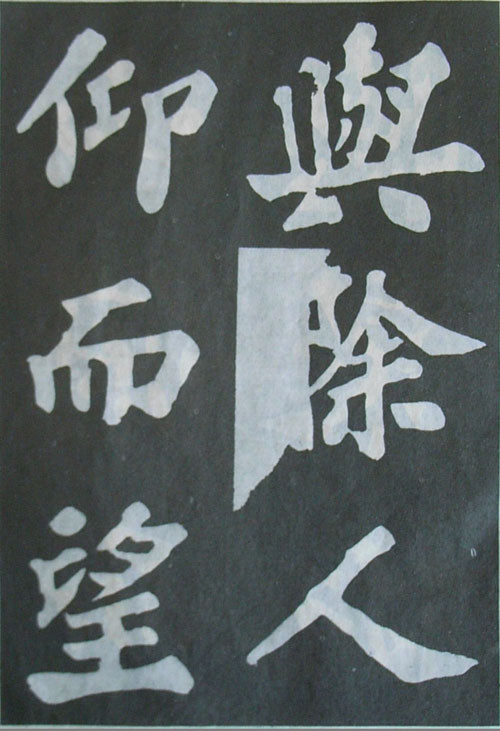 與除人
仰而望